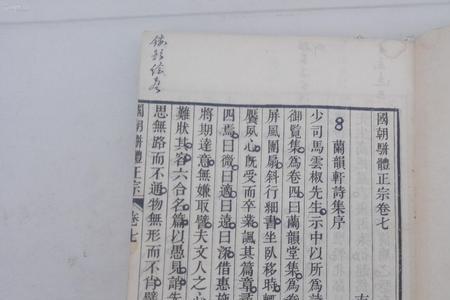 國朝駢體正宗卷七
蘭韻軒詩集序
少司馬雲椒先生示中以所為詩
御覽集為卷四曰蘭韻堂集為卷
屏風團扇斜行細書坐臥移時輒
饜夙心既受而卒業諷其篇章尋
四焉曰微曰適曰遠曰深借惠施
將期達意無嫌取譬夫文人之心
難狀其容六合名篇以愚見誚朱
思無路而不通物無形而不肖譬
國朝駢體正宗 卷七